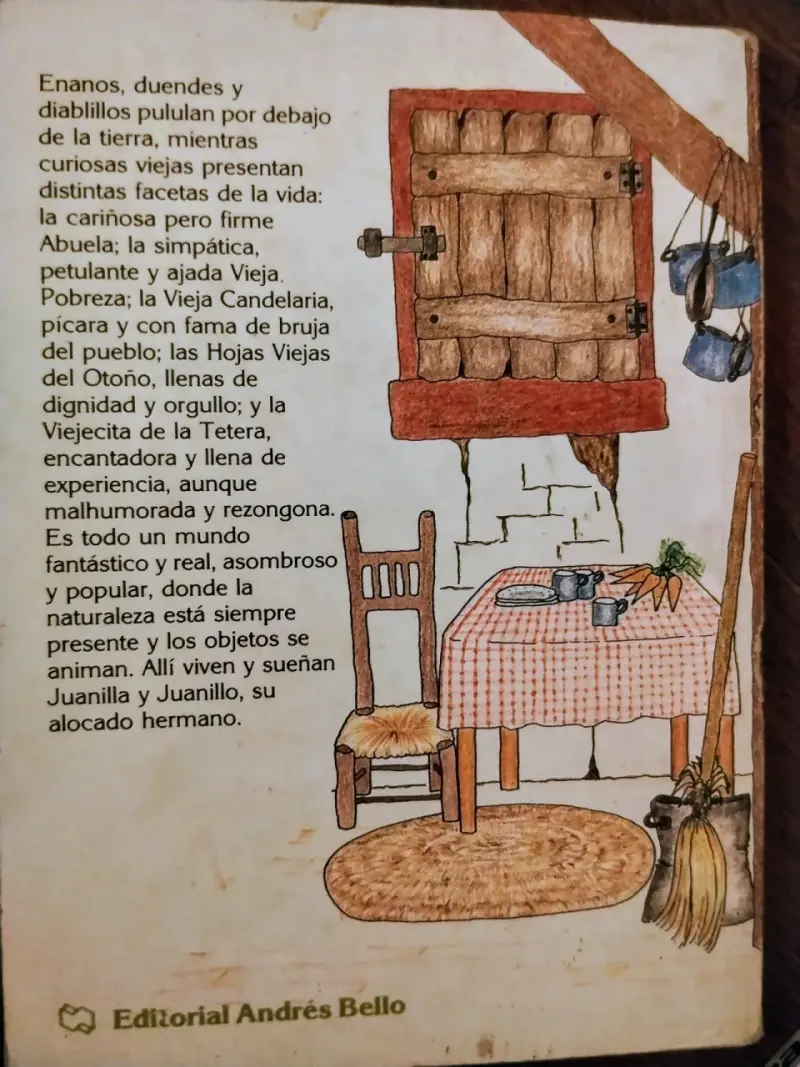 Enanos, duendes y
diablillos pululan por debajo
de la tierra, mientras
curiosas viejas presentan
distintas facetas de la vida:
la cariñosa pero firme
Abuela; la simpática,
petulante y ajada Vieja
Pobreza; la Vieja Candelaria,
pícara y con fama de bruja
del pueblo; las Hojas Viejas
del Otoño, llenas de
dignidad y orgullo; y la
Viejecita de la Tetera,
encantadora y llena de
experiencia, aunque
malhumorada y rezongona.
Es todo un mundo
fantástico y real, asombroso
y popular, donde la
naturaleza está siempre
presente y los objetos se
animan. Allí viven y sueñan
Juanilla y Juanillo, su
alocado hermano.
Editorial Andrés Bello